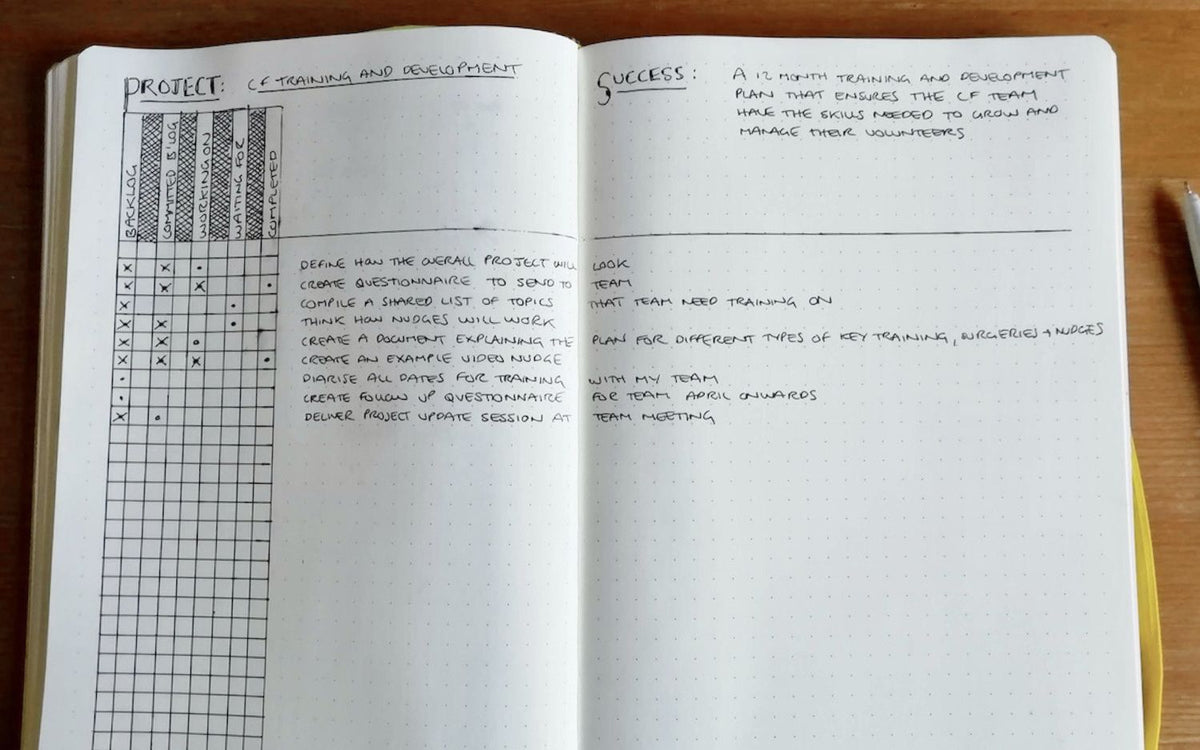 PROJECT: CF TRAINING AND DEVELOPMENT
BACKLOG
COMMITTED B'LOG
WORKING ON
WAITING FOR
COMPLETED
SUCCESS: A 12 MONTH TRAINING AND DEVELOPMENT
PLAN THAT ENSURES THE CF TEAM
HAVE THE SKILLS NEEDED TO GROW AND
MANAGE THEIR VOLUNTEERS
DEFINE HOW THE OVERALL PROJECT WILL LOOK
CREATE QUESTIONNAIRE TO SEND TO TEAM
COMPILE A SHARED LIST OF TOPICS THAT TEAM NEED TRAINING ON
THINK HOW NUDGES WILL WORK
CREATE A DOCUMENT EXPLAINING THE PLAN FOR DIFFERENT TYPES OF KEY TRAINING, SURGERIES + NUDGES
CREATE AN EXAMPLE VIDEO NUDGE
DIARISE ALL DATES FOR TRAINING WITH MY TEAM
CREATE FOLLOW UP QUESTIONNAIRE FOR TEAM APRIL ONWARDS
DELIVER PROJECT UPDATE SESSION AT TEAM MEETING